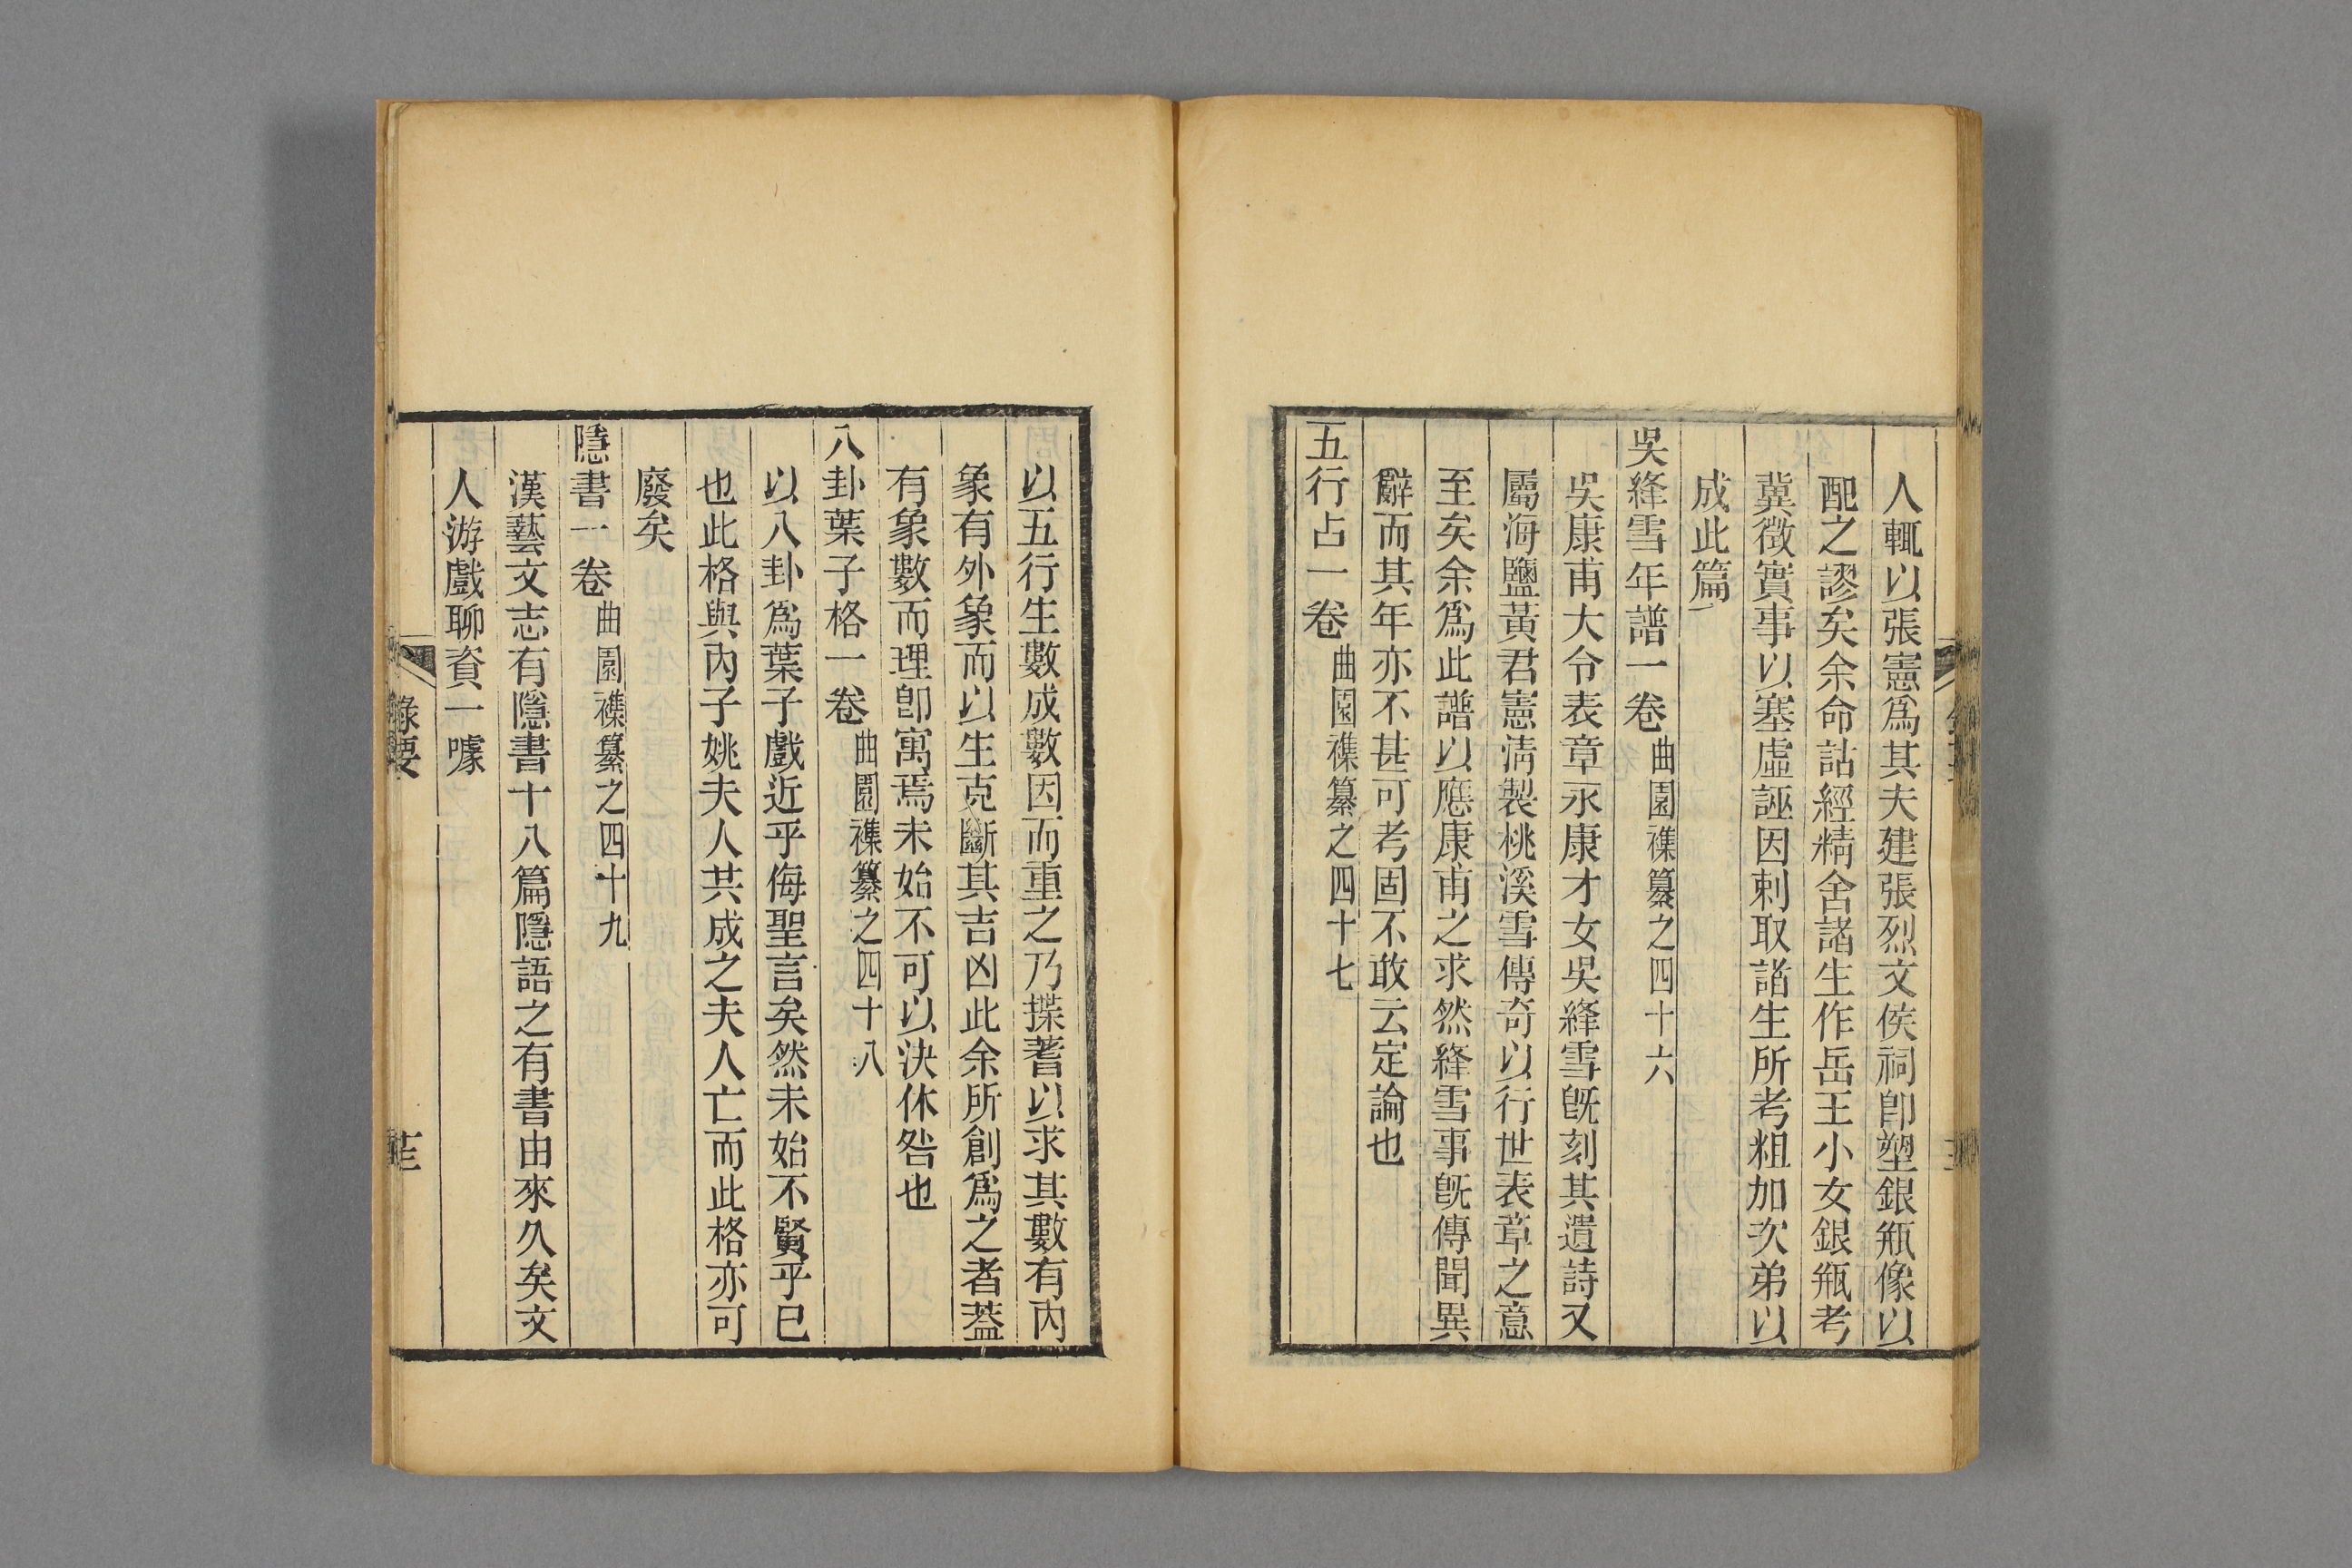 人輒以張憲爲其夫建張烈文侯祠卽塑銀瓶像以
配之謬矣余命詁經精舍諸生作岳王小女銀瓶考
冀徵實事以塞虛誣因刺取諸生所考粗加次弟以
成此篇
吳絳雪年譜一卷曲園襍纂之四十六
吳康甫大令表章永康才女吳絳雪旣刻其遺詩又
屬海鹽黃君憲淸製桃溪雪傳奇以行世表章之意
至矣余爲此譜以應康甫之求然絳雪事旣傳聞異
辭而其年亦不甚可考固不敢云定論也
五行占一卷曲園襍纂之四十七
以五行生數成數因而重之乃揲蓍以求其數有內
象有外象而以生克斷其吉凶此余所創爲之者葢
有象數而理卽寓焉未始不可以決休咎也
八卦葉子格一卷曲園襍纂之四十八
以八卦爲葉子戲近乎侮聖言矣然未始不賢乎已
也此格與內子姚夫人共成之夫人亡而此格亦可
廢矣
隱書一卷曲園襍纂之四十九
漢藝文志有隱書十八篇隱語之有書由來久矣文
人游戲聊資一噱
錄要